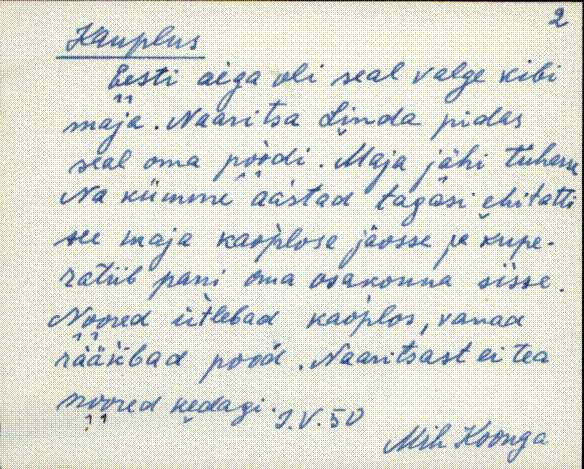 2
Kauplus
Eesti aega oli seal valge kibi
maja. Naaritsa Linda pidas
seal oma pöödi. Maja jähi tühasse
Na kümme äästad tagasi ehitatti
see maja kaoplose jäosse ja kupe-
ratiib pani oma osakonna sisse.
Noored ütlebad kaoplos, vanad
rääkbad pood. Naaritsast ei tea
noored kedagi.
J.V.50
Mih Koonga